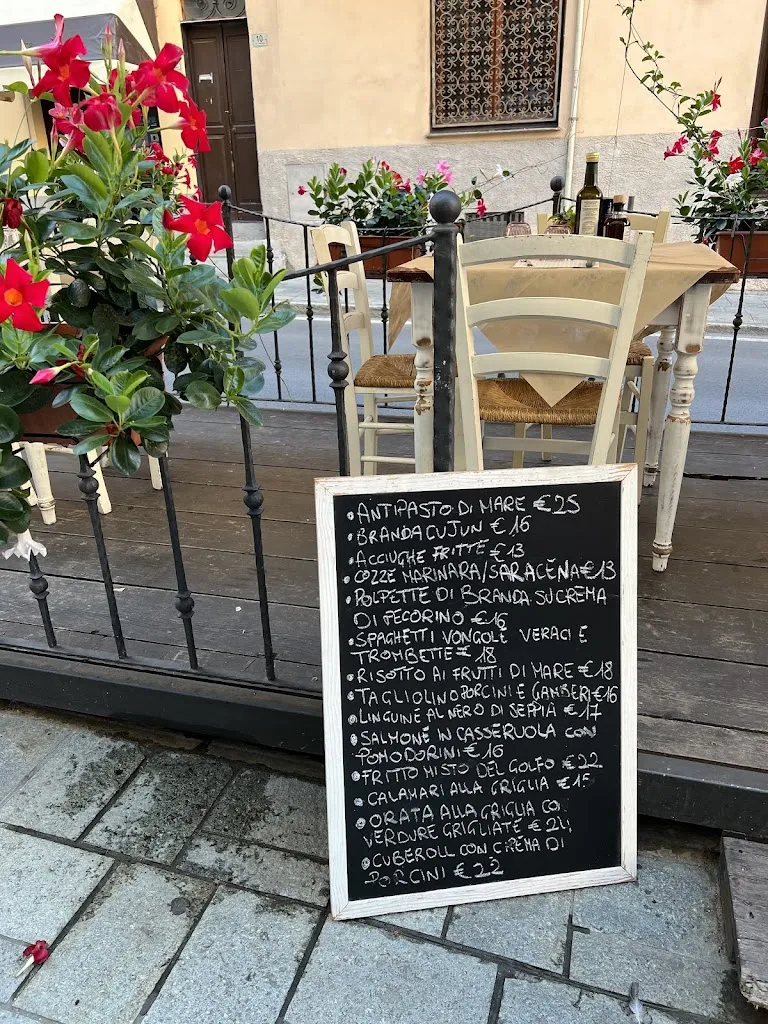 10
• ANTIPASTO DI MARE €25
• BRANDACUJUN €16
• ACCIUGHE FRITTE €13
• COZZE MARINARA/SARACENA €13
• POLPETTE DI BRANDA SU CREMA
DI PECORINO €16
• SPAGHETTI VONGOLE VERACI E
TROMBETTE € 18
• RISOTTO AI FRUTTI DI MARE €18
• TAGLIOLINO PORCINI E GAMBERI €16
• LINGUINE AL NERO DI SEPPIA €17
• SALMONE IN CASSERUOLA CON
POMODORINI €16
• FRITTO MISTO DEL GOLFO €22
• CALAMARI ALLA GRIGLIA €15
• ORATA ALLA GRIGLIA CON
VERDURE GRIGLIATE €24
• CUBEROLL CON CREMA DI
PORCINI €22